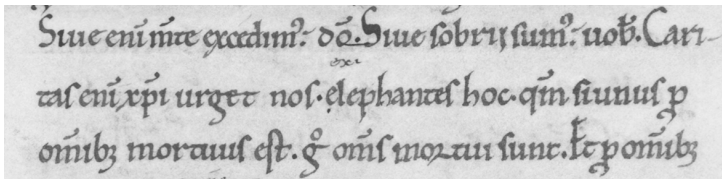 Siue enī m̄te excedim᷒: dō. Siue sobrij sum᷒: uob̄. Cari-
exi
tas enī xp̄i urget nos. elephantes hoc. qm̄ si unus ꝑ
om̄ibꝫ mortuus est. gͦ om̄s mortui sunt. Et ꝑ om̄ibꝫ